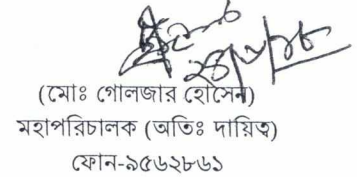 (মোঃ গোলজার হোসেন)
মহাপরিচালক (অতিঃ দায়িত্ব)
ফোন-৯৫৬২৮৬১